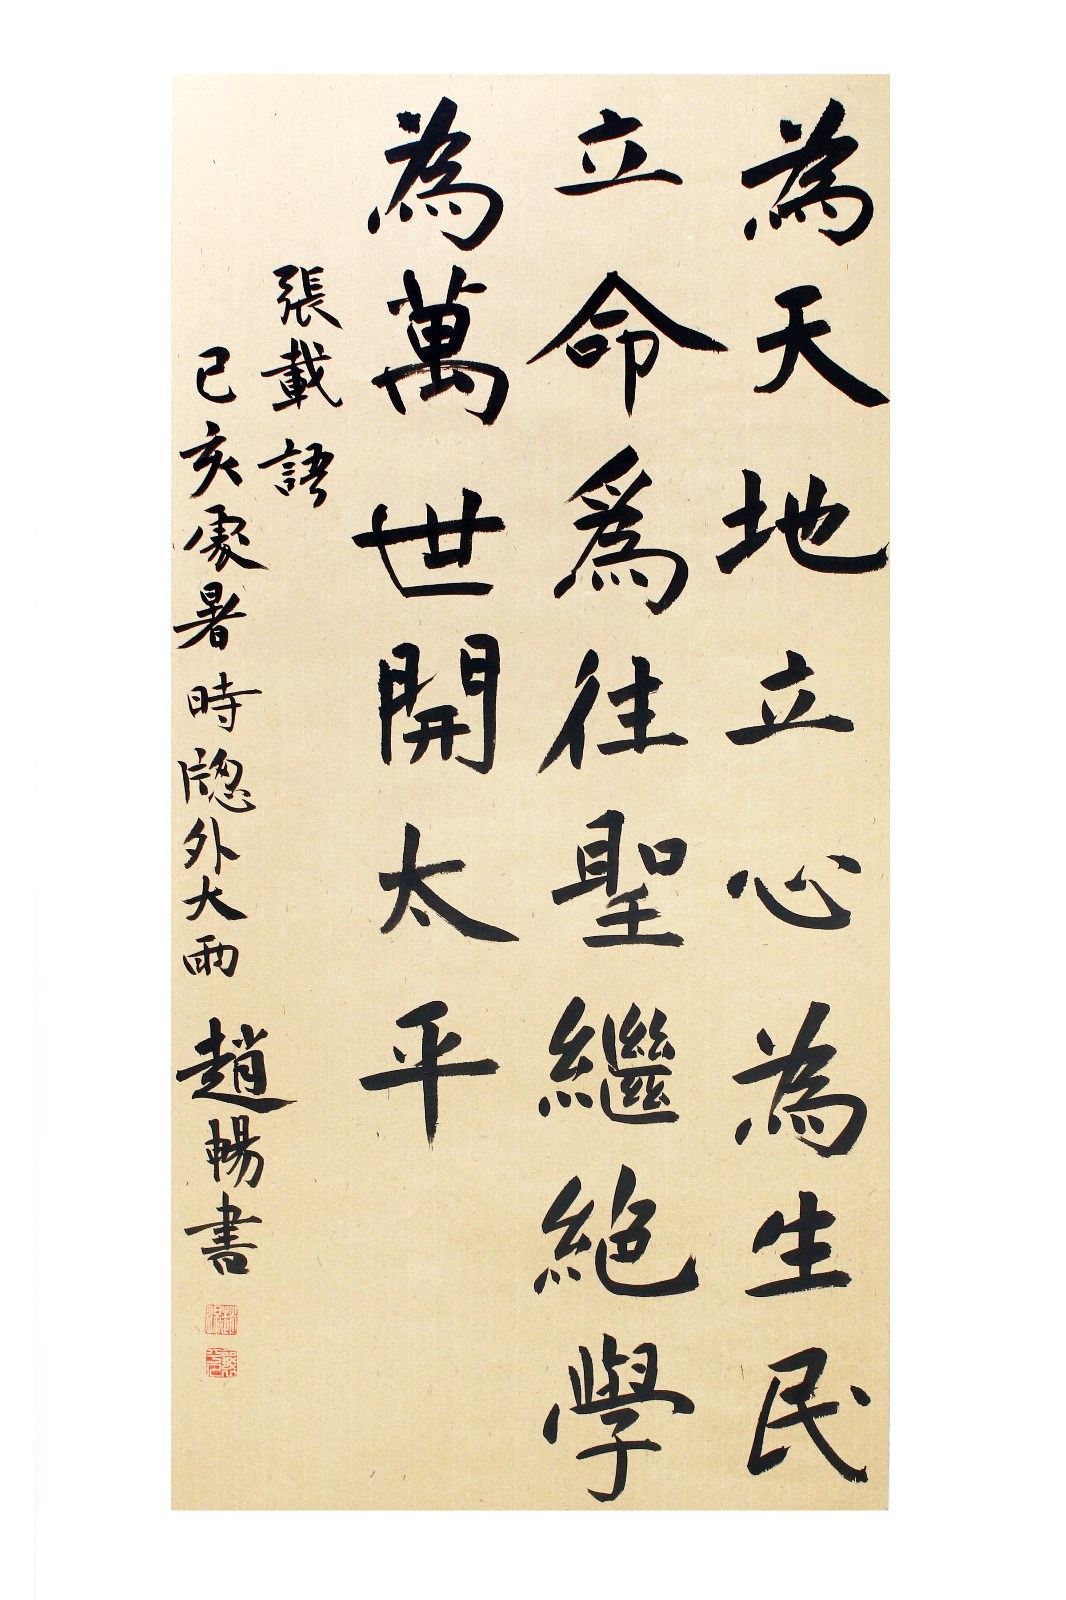 為天地立心為生民
立命為往聖繼絕學
為萬世開太平
張載語
己亥處暑時牕外大雨 趙暢書